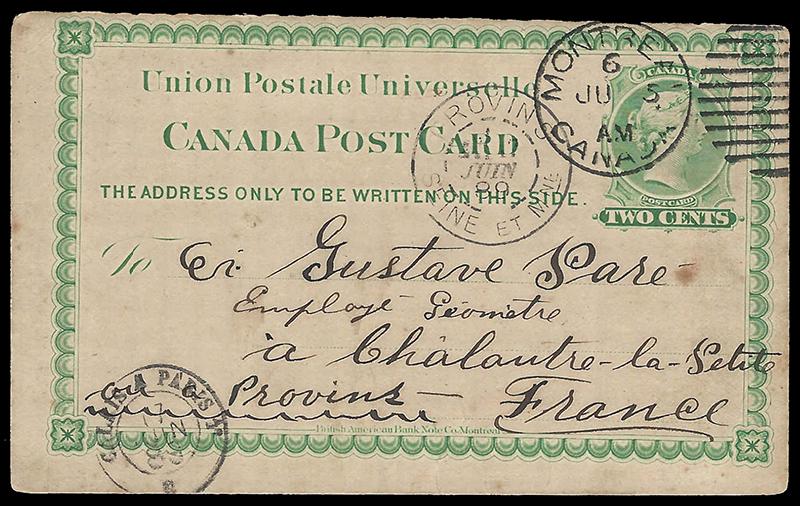 Union Postale Universelle
CANADA POST CARD
THE ADDRESS ONLY TO BE WRITTEN ON THIS SIDE.
CANADA
POSTCARD
TWO CENTS
MONTRE
6
JU 5
AM
CANADA
PROVINS
JUIN
SEINE ET MNE
To Gustave Paré
Employé Géomètre
à Châlautre-la-Petite
Provins France
CALAIS A PARIS
British American Bank Note Co. Montreal